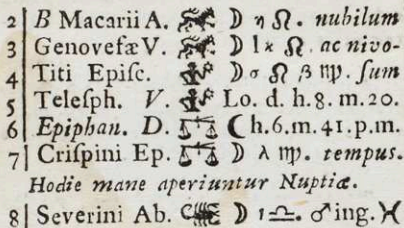 2 B Macarii A. ♌ ☽ η ♌. nubilum
3 Genovefæ V. ♌ ☽ l κ ♌. ac nivo-
4 Titi Epiſc. ♍ ☽ σ ♌ β ♍. ſum
5 Teleſph. V. ♍ Lo. d. h. 8. m. 20.
6 Epiphan. D. ♎ ☾ h. 6. m. 41. p. m.
7 Criſpini Ep. ♎ ☽ λ ♍. tempus.
Hodie mane aperiuntur Nuptiæ.
8 Severini Ab. ♏ ☽ 1 ♎. ♂ ing. ♓